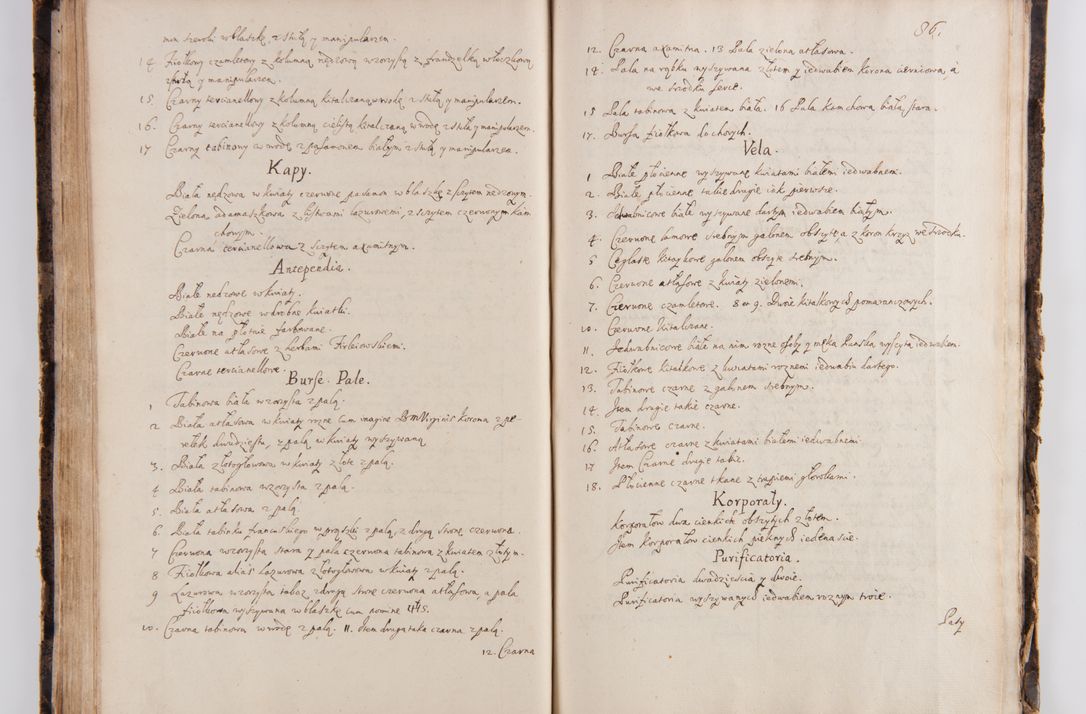 mem szeroki w blaszkę, z stułą y manipularzem.
14 Fiołkowy czamletowy z kolumną nędzową wzorzystą z frandzelką włoczkową
stułą y manipularzem.
15. Czarny tercianellowy z kolumną kitalczaną w wodę z stułą y manipularzem.
16. Czarny tercianellowy z kolumną cielistą kitalczaną w wodę z stułą y manipularzem.
17 Czarny tabinowy w wodę z pasamonem białym z stułą y manipularzem.
Kapy.
Biała nędzowa w kwiaty czerwone pasamon w blaszkę z szczytem nędzowym.
Zielona adamaszkowa z listwami lazurowemi, z szczytem czerwonym kam
chowym.
Czarna tercianellowa z szczytem axamitnym.
Antependia.
Białe nędzowe w kwiaty.
Białe nędzowe w drobne kwiatki.
Białe na płotnie farbowane.
Czerwone atłasowe z herbami
Czarne tercianellowe.
Burse. Pale.
1 Tabinowa biała wzorzysta z palą.
2 Biała atłasowa w kwiaty rożne cum imagine B. M. Virginis korona z pe-
rełek dwudziestu, z palą w kwiaty wyszywaną
3. Biała złotogłowowa w kwiaty złote z palą.
4 Biała tabinowa wzorzysta z palą.
5. Biała atłasowa z palą.
6. Biała tabinku francuskiego w prążki z palą, z drugą stroną czerwoną.
7 Czerwona wzorzysta stara y pala czerwona tabinowa z kwiatem złotym.
8 Fiołkowa alias Lazurowa złotogłowowa w kwiaty z palą.
9 Lazurowa wzorzysta taboz z drugą stroną czerwona atłasowa, a pala
fiołkowa wyszywana w blaszkę cum nomine IHS.
10. Czarna tabinowa w wodę z palą. 11. Item druga taka czarna z palą.
12. Czarna
86.
12. Czarna axamitna. 13 Pala zielona atłasowa.
14. Pala na rąbku wyszywana złotem y iedwabiem korona cierniowa, a
we srodku serce.
15 Pala tabinowa z kwiatem biała. 16 Pala kamchowa biała stara.
17. Bursa fiołkowa do chorych.
Vela.
1 Białe płocienne wyszywane kwiatami białemi iedwabnemi.
2. Białe płocienne takie drugie iak pierwsze.
3. Jedwabnicowe białe wyszywane dartym iedwabiem białym.
4. Czerwone lamowe srebrnym galonem obszyte, a z koron krzyz we srodku.
5 Ceglaste kitaykowe galonem obszyte srebrnym.
6. Czerwone atłasowe z kwiaty zielonemi.
7. Czerwone czamletowe. 8 et 9. Dwoie kitalkowych pomaranczowych.
10. Czerwone kitalczane.
11. Jedwabnicowe białe na nim rozne osoby y męka Panska wyszyta iedwabiem.
12. Fiołkowe kitalkowe z kwiatami roznemi iedwabiu dartego.
13. Tabinowe czarne z galonem srebrnym.
14. Item drugie takie czarne.
15. Tabinowe czarne.
16. Atłasowe czarne z kwiatami białemi iedwabnemi
17 Item Czarne drugie takie.
18. Płocienne czarne tkane z trupiemi głowkami.
Korporały.
Korporałow dwa cienkich obszytych złotem.
Item Korporałow cienkich pięknych iedenascie.
Purificatoria.
Purificatoria dwadziescia y dwoie.
Purificatoria wyszywanych iedwabiem roznym troie.
Pasy